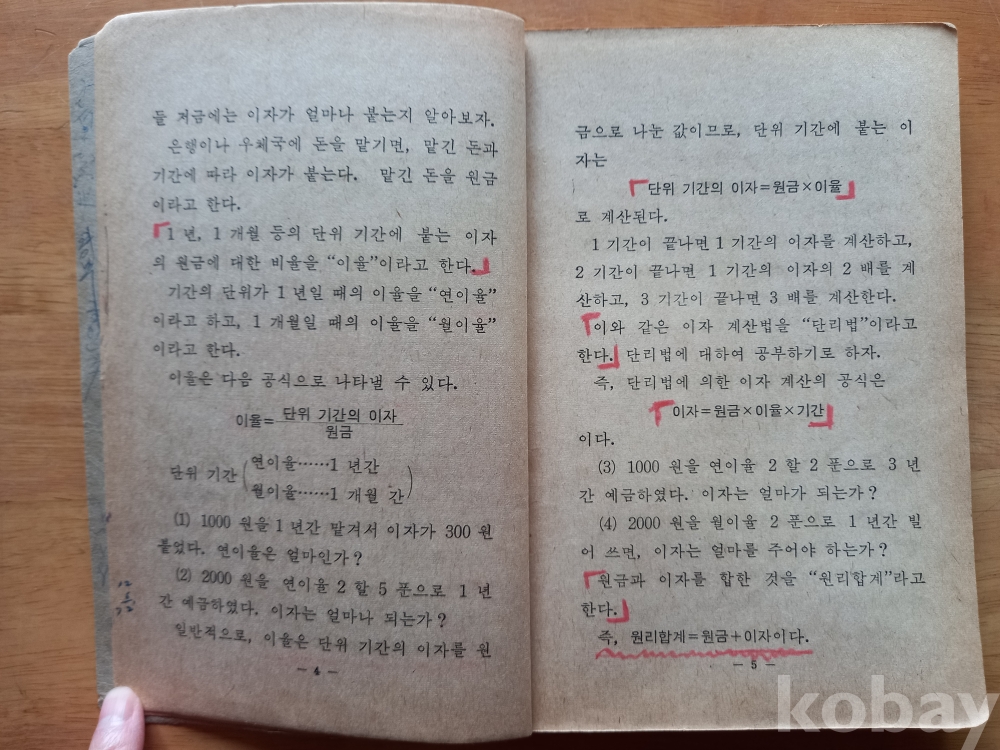 들 저금에는 이자가 얼마나 붙는지 알아보자.
은행이나 우체국에 돈을 맡기면, 맡긴 돈과
기간에 따라 이자가 붙는다. 맡긴 돈을 원금
이라고 한다.
「1년, 1개월 등의 단위 기간에 붙는 이자
의 원금에 대한 비율을 “이율”이라고 한다.」
기간의 단위가 1년일 때의 이율을 “연이율”
이라고 하고, 1개월일 때의 이율을 “월이율”
이라고 한다.
이율은 다음 공식으로 나타낼 수 있다.
이율= 단위 기간의 이자
원금
단위 기간(연이율……1 년간
월이율……1 개월 간)
(1) 1000 원을 1년간 맡겨서 이자가 300 원
붙었다. 연이율은 얼마인가?
(2) 2000 원을 연이율 2 할 5 푼으로 1 년
간 예금하였다. 이자는 얼마나 되는가?
일반적으로, 이율은 단위 기간의 이자를 원
— 4 —
금으로 나눈 값이므로, 단위 기간에 붙는 이
자는
「단위 기간의 이자=원금×이율」
로 계산된다.
1기간이 끝나면 1기간의 이자를 계산하고,
2 기간이 끝나면 1 기간의 이자의 2 배를 계
산하고, 3 기간이 끝나면 3 배를 계산한다.
「이와 같은 이자 계산법을 “단리법”이라고
한다.」 단리법에 대하여 공부하기로 하자.
즉, 단리법에 의한 이자 계산의 공식은
「이자=원금×이율×기간」
이다.
(3) 1000 원을 연이율 2 할 2 푼으로 3 년
간 예금하였다. 이자는 얼마가 되는가?
(4) 2000 원을 월이율 2 푼으로 1 년간 빌
어 쓰면, 이자는 얼마를 주어야 하는가?
「원금과 이자를 합한 것을 “원리합계”라고
한다.」
즉, 원리합계=원금+이자이다.
— 5 —
kobay